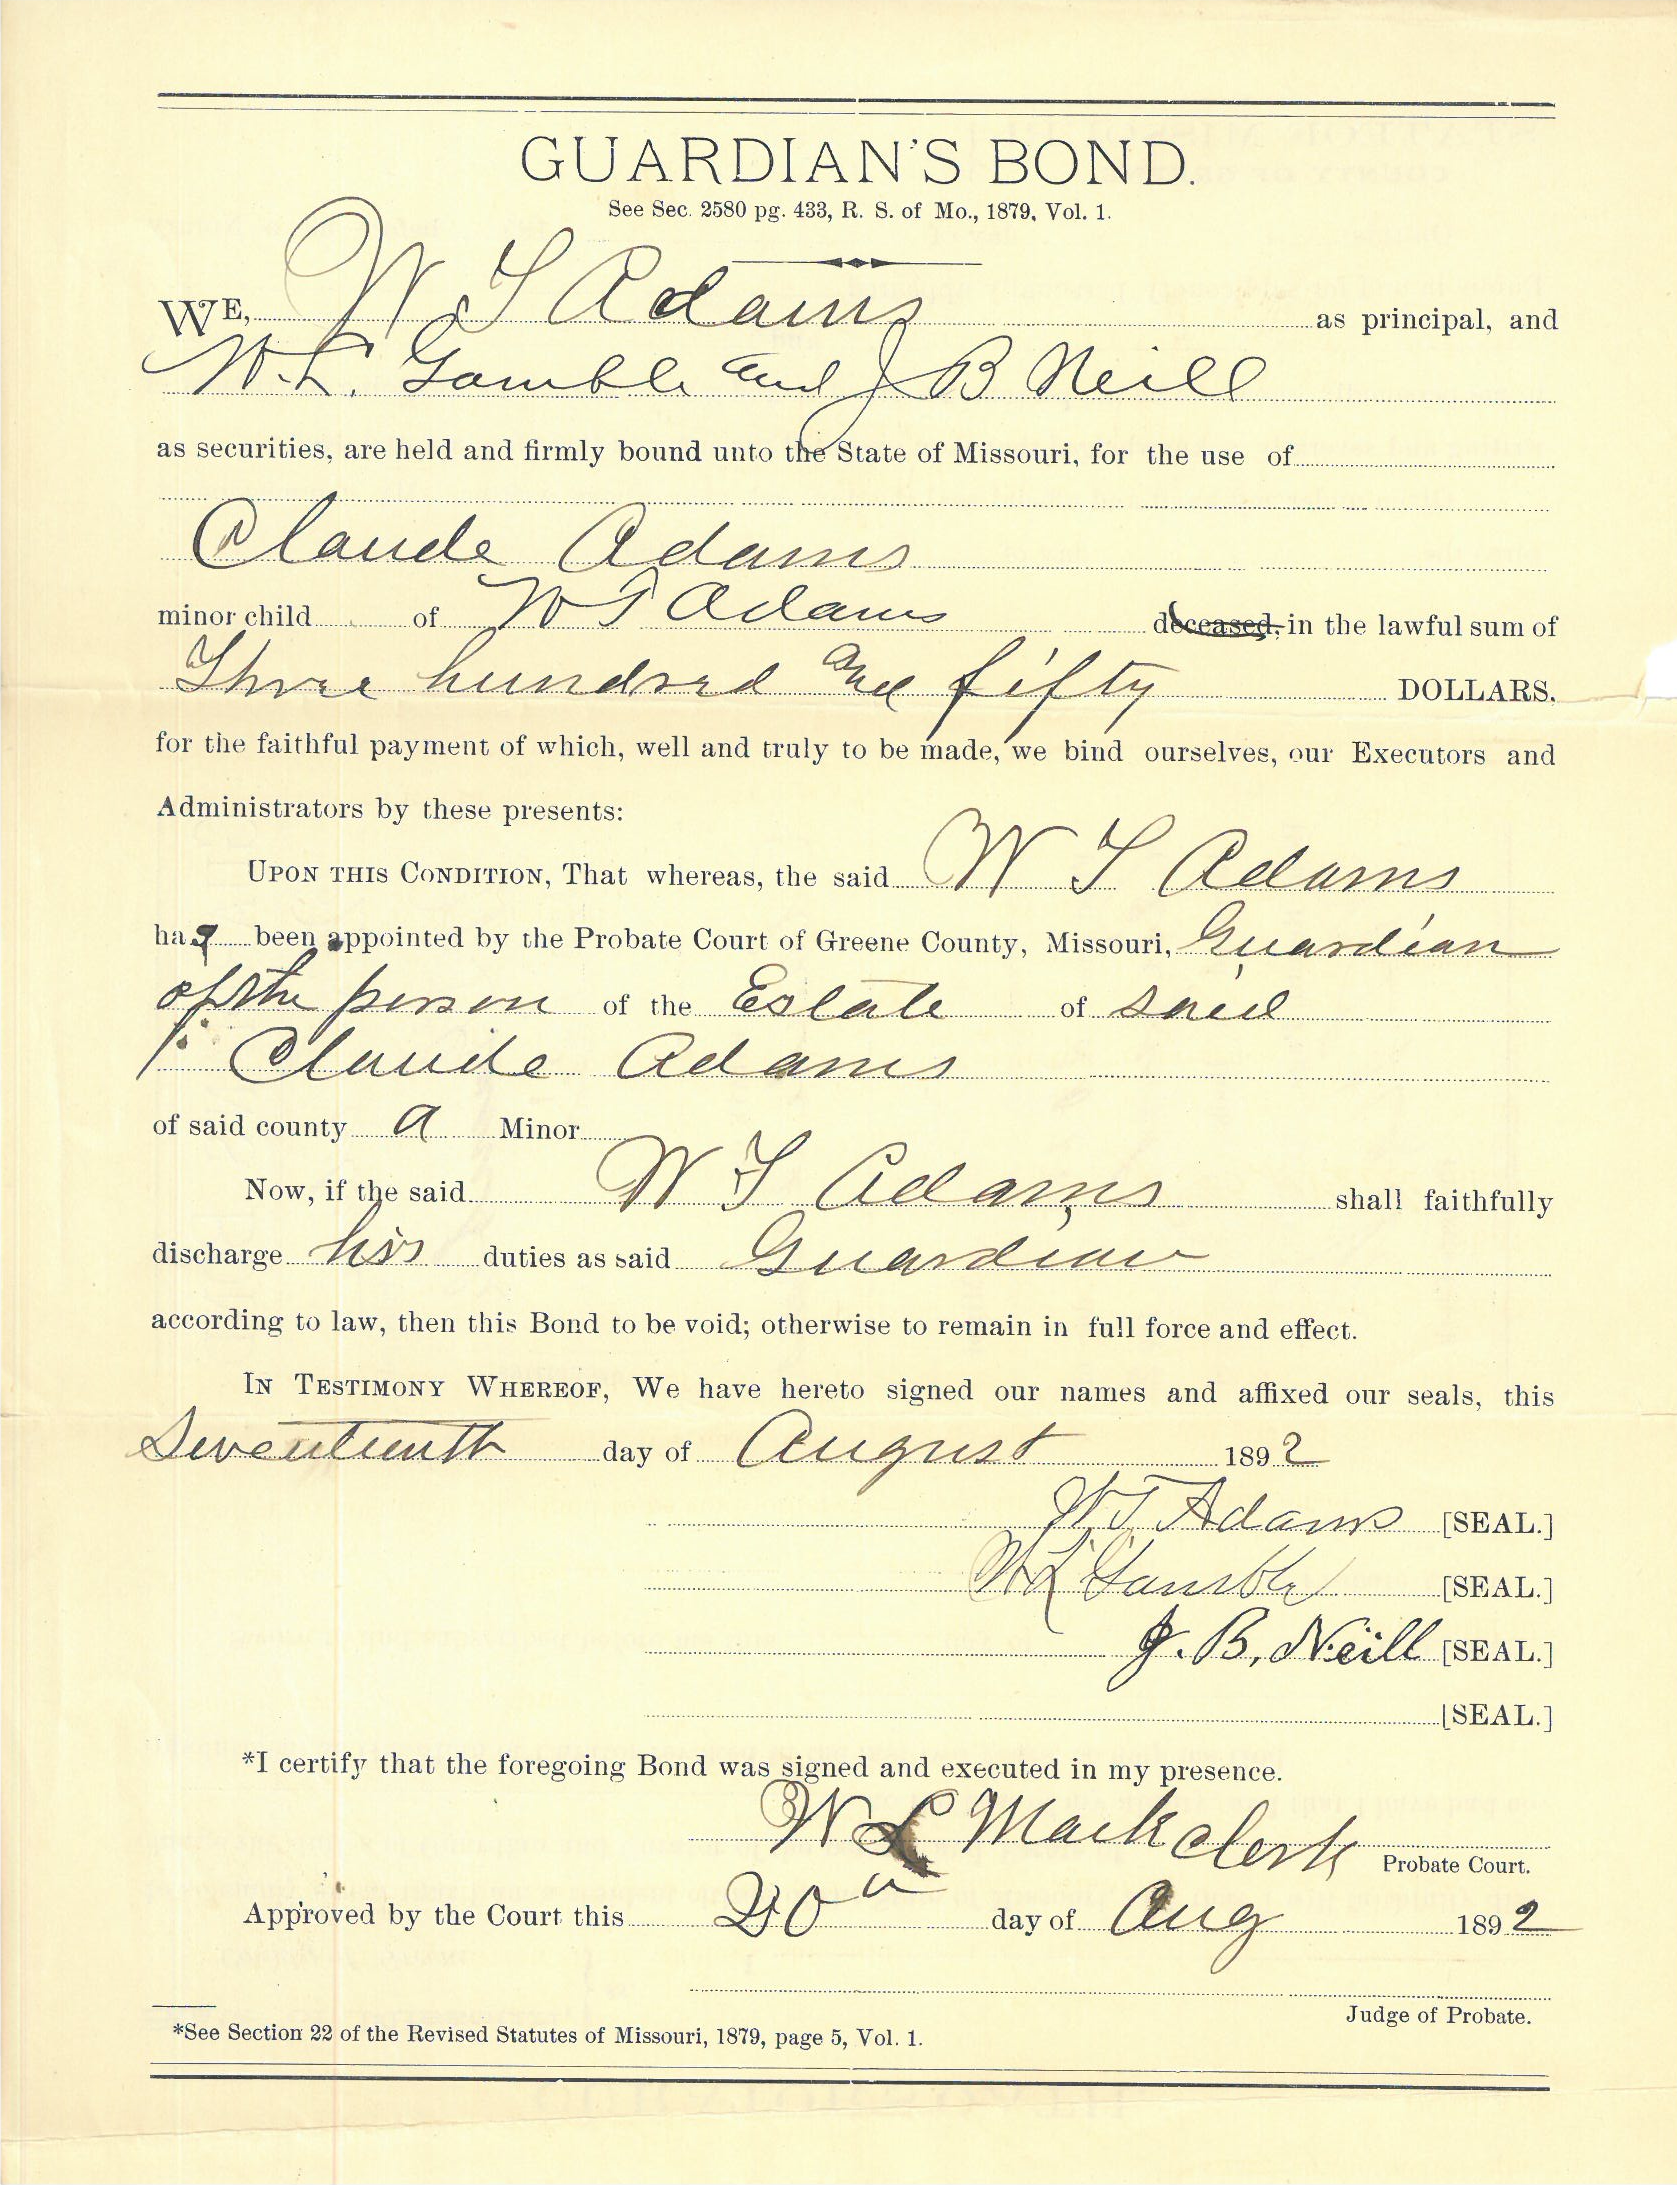 GUARDIAN'S BOND.
See Sec. 2580 pg. 433, R. S. of Mo., 1879, Vol. 1.
WE, W T Adams as principal, and
W. L. Gamble and J B Neill
as securities, are held and firmly bound unto the State of Missouri, for the use of
Claude Adams
minor child of W T Adams deceased, in the lawful sum of
Three hundred and fifty DOLLARS.
for the faithful payment of which, well and truly to be made, we bind ourselves, our Executors and
Administrators by these presents:
UPON THIS CONDITION, That whereas, the said W T Adams
has been appointed by the Probate Court of Greene County, Missouri, Guardian
of the person of the Estate of said
Claude Adams
of said county a Minor
Now, if the said W T Adams shall faithfully
discharge his duties as said Guardian
according to law, then this Bond to be void; otherwise to remain in full force and effect.
IN TESTIMONY WHEREOF, We have hereto signed our names and affixed our seals, this
Seventeenth day of August 1892
W T Adams [SEAL.]
W L Gamble [SEAL.]
J. B. Neill [SEAL.]
[SEAL.]
*I certify that the foregoing Bond was signed and executed in my presence.
W L Mack clerk
Probate Court.
Approved by the Court this 20th day of Aug 1892
Judge of Probate.
*See Section 22 of the Revised Statutes of Missouri, 1879, page 5, Vol. 1.